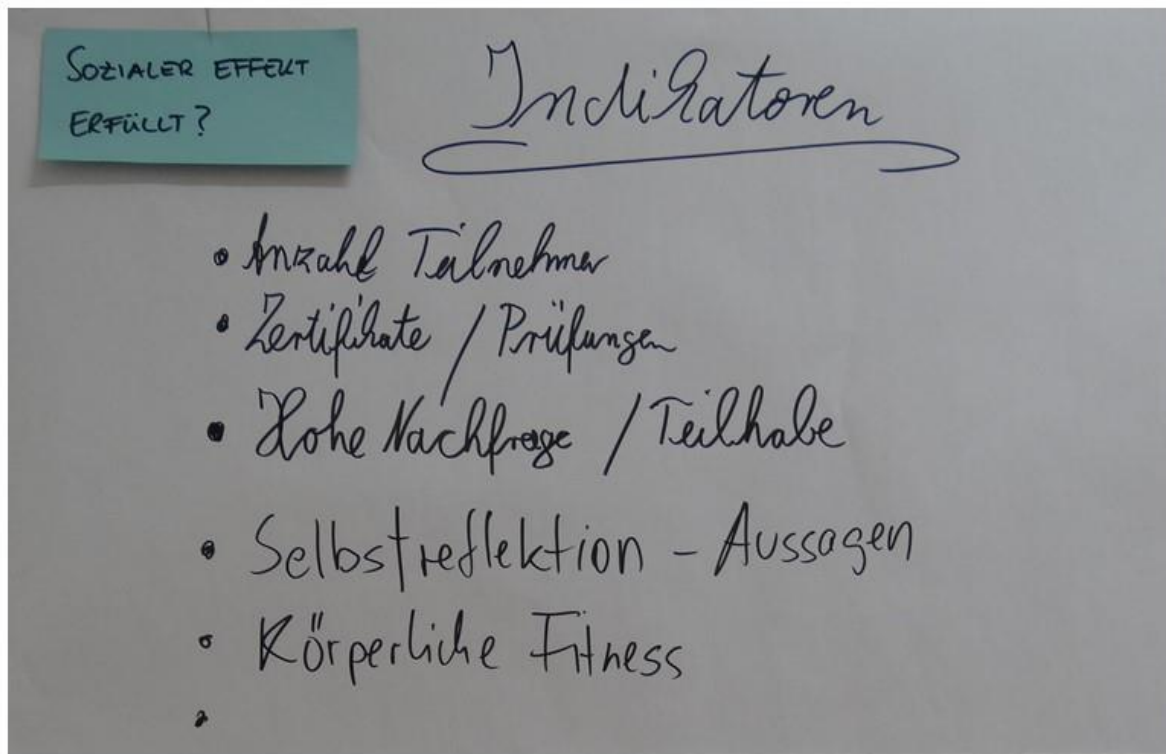 SOZIALER EFFEKT
ERFÜLLT?
Indikatoren
• Anzahl Teilnehmer
• Zertifikate / Prüfungen
• Hohe Nachfrage / Teilhabe
• Selbstreflektion – Aussagen
• Körperliche Fitness
•